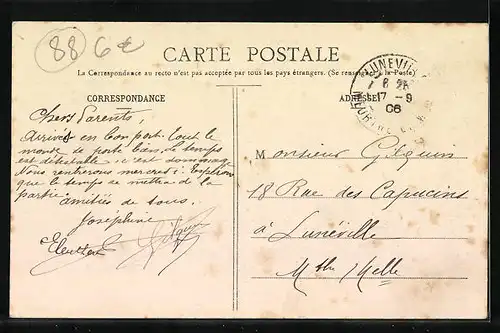 88 6€
CARTE POSTALE
La Correspondance au recto n'est pas acceptée par tous les pays étrangers. (Se renseigner à la Poste)
CORRESPONDANCE
ADRESSE
LUNEVILLE
17 - 9
06
Chers Parents,
Arrivés en bon port. tout le
monde se porte bien. Le temps
est détestable c'est dommage
Nous rentrerons mercredi. Espérons
que le temps se mettra de la
partie
amitiés de tous.
Joséphine
Monsieur Gilquin
18 Rue des Capucins
à Lunéville
Mthe Melle